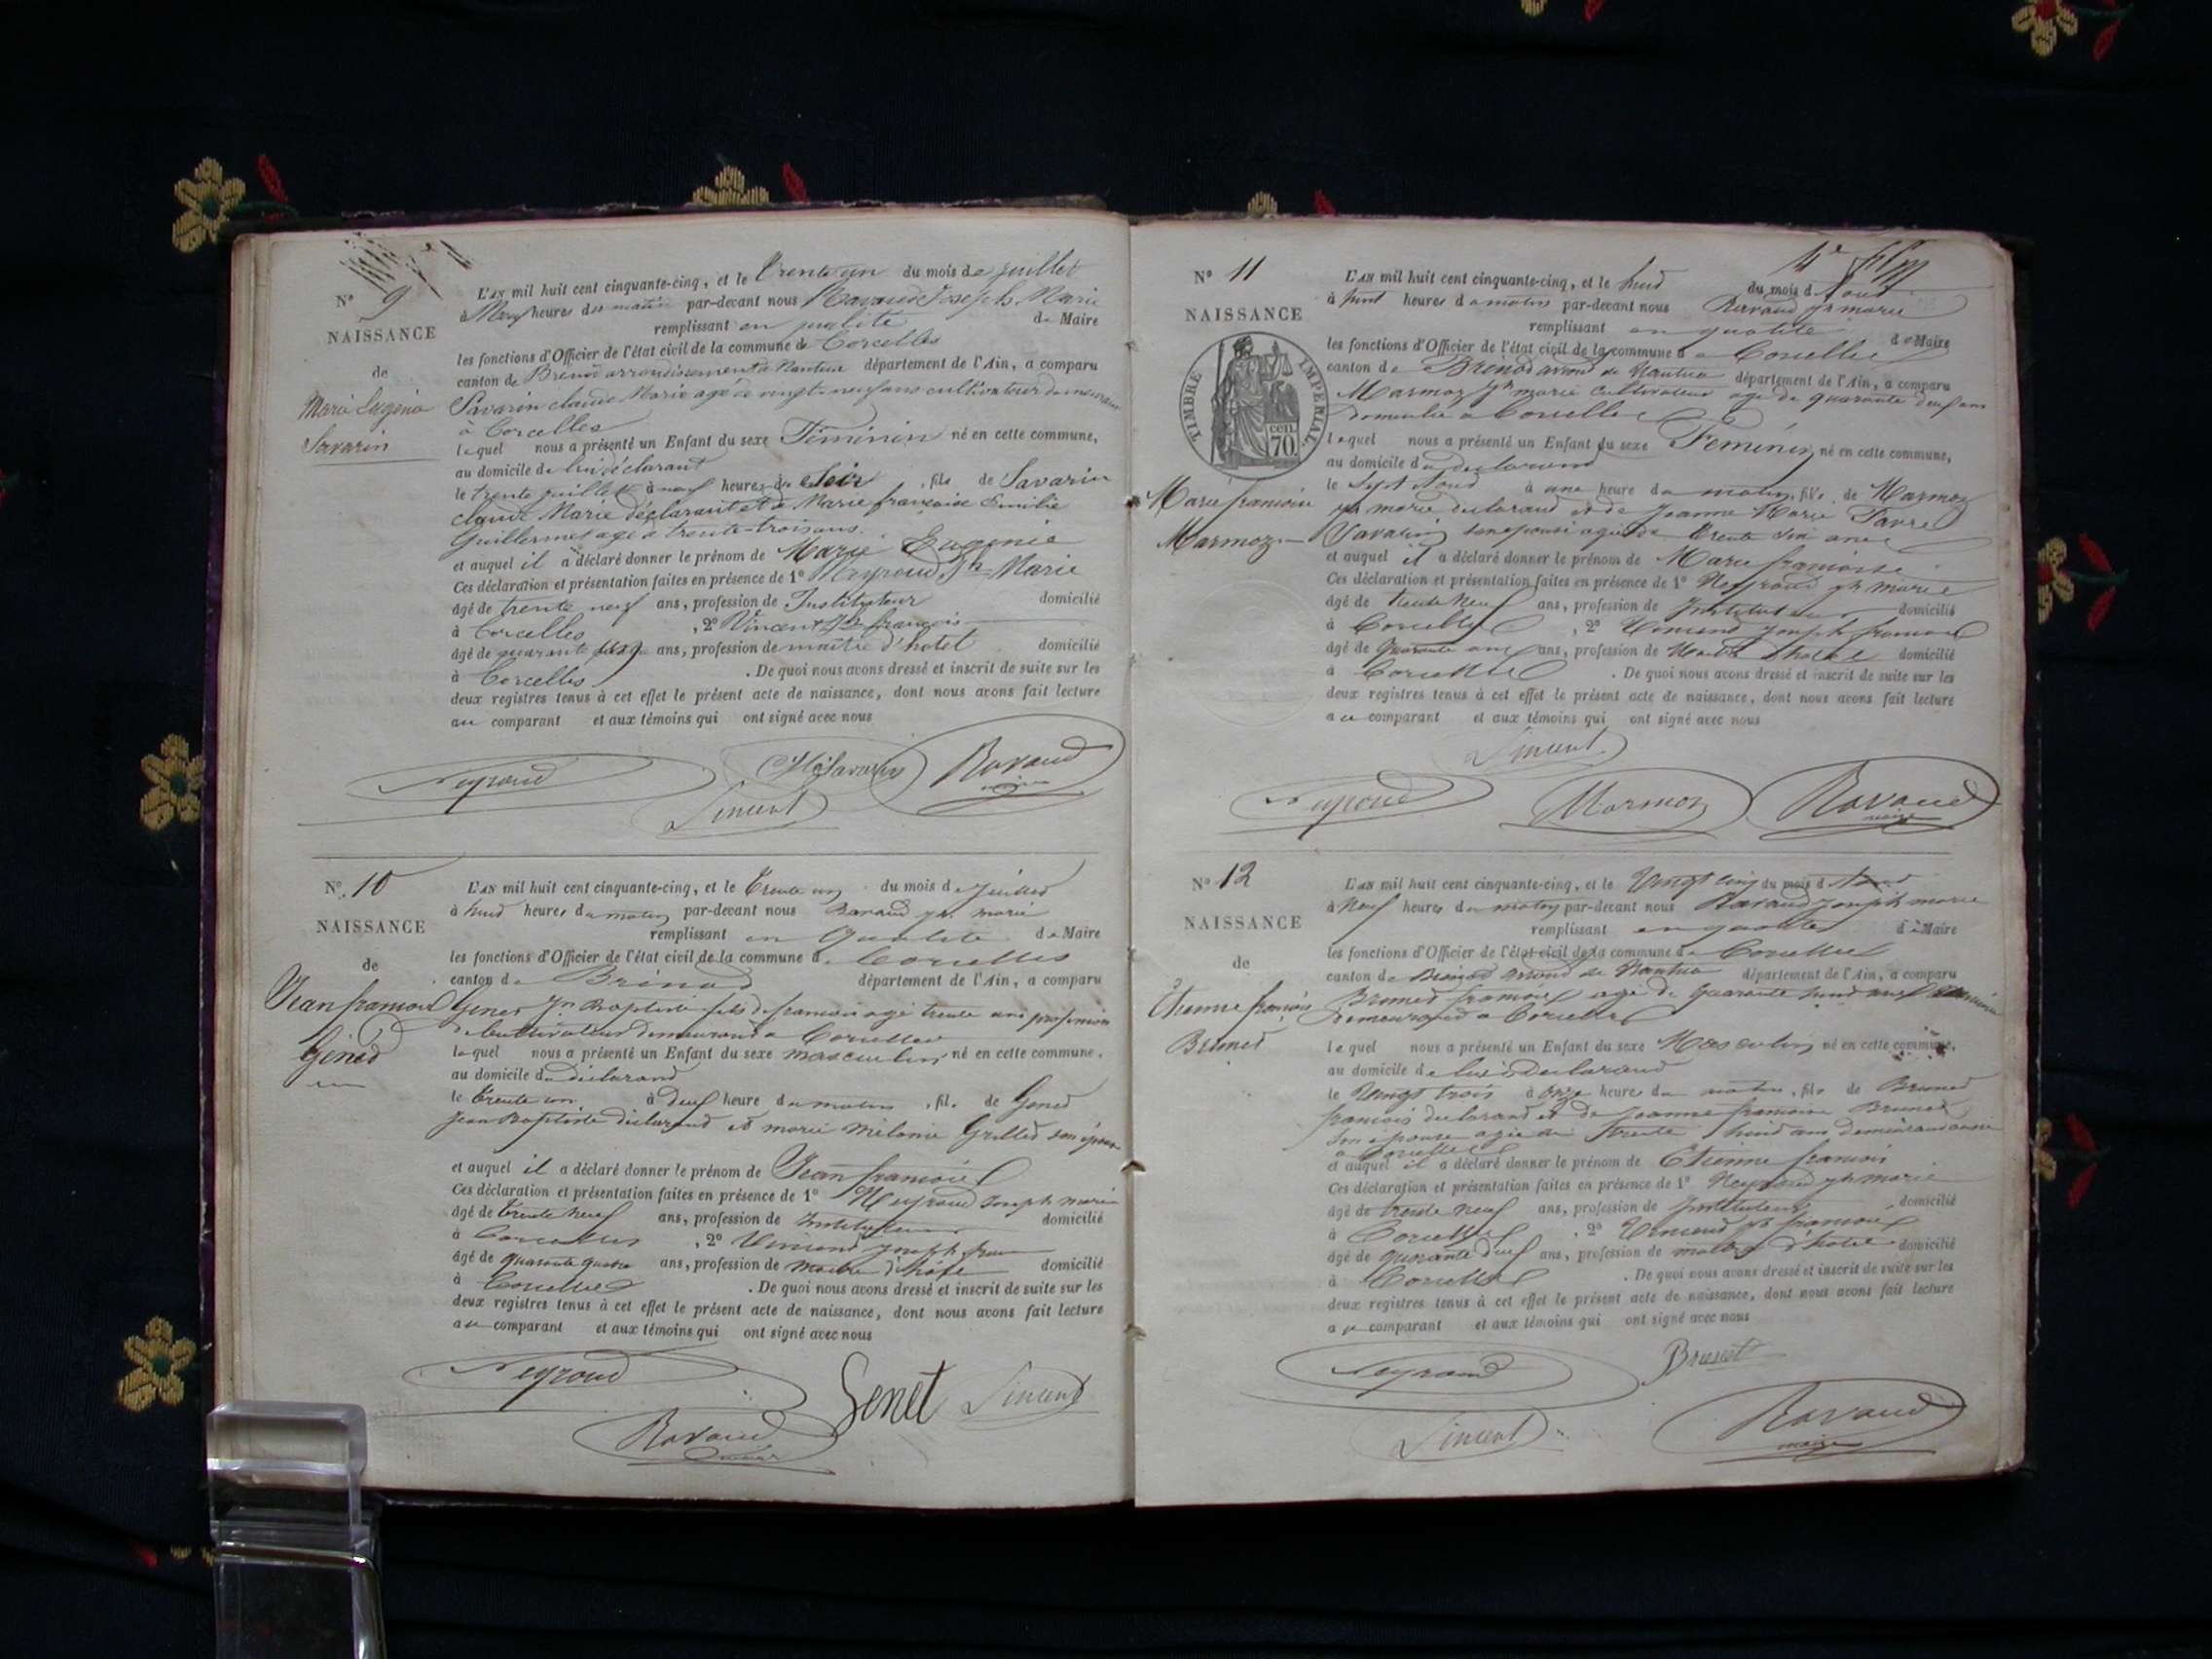 N° 9
NAISSANCE
de
Marie Eugénie
Savarin
L'AN mil huit cent cinquante-cinq, et le trente un du mois de juillet
à heures du matin par-devant nous Ravaud Joseph Marie
remplissant en qualité de Maire
les fonctions d'Officier de l'état civil de la commune de Corcelles
canton de Brenod arrondissement de Nantua département de l'Ain, a comparu
Savarin claude Marie agé de vingt-neuf ans cultivateur demeurant
à Corcelles
lequel nous a présenté un Enfant du sexe Féminin né en cette commune,
au domicile de lui déclarant
le trente juillet à neuf heures du soir, fils de Savarin
claude Marie déclarant et de Marie française Emilie
Guillermet agé de trente-trois ans.
et auquel il a déclaré donner le prénom de Marie Eugénie
Ces déclaration et présentation faites en présence de 1° Neyroud Jh Marie
âgé de trente neuf ans, profession de Instituteur domicilié
à Corcelles, 2° Vincent Jh françois
âgé de quarante ans, profession de maître d'hotel domicilié
à Corcelles. De quoi nous avons dressé et inscrit de suite sur les
deux registres tenus à cet effet le présent acte de naissance, dont nous avons fait lecture
au comparant et aux témoins qui ont signé avec nous
Neyroud Savarin Ravaud
maire
Vincent
N° 10
NAISSANCE
de
Jean francois
Gened
L'AN mil huit cent cinquante-cinq, et le Trente un du mois de Juilled
à huid heures du matin par-devant nous Ravaud jh marie
remplissant en Qualité de Maire
les fonctions d'Officier de l'état civil de la commune de Corcelles
canton de Brénod département de l'Ain, a comparu
Gened Jn Baptiste fils de francois agé trente ans profession
de Cultivateur demeurand a Corcelles
lequel nous a présenté un Enfant du sexe masculin né en cette commune,
au domicile du déclarand
le trente un à deux heure du matin, fils de Gened
Jean Baptiste déclarand et marie Mélanie Grilled son épouse
et auquel il a déclaré donner le prénom de Jean francois
Ces déclaration et présentation faites en présence de 1° Neyroud Joseph marie
âgé de trente neuf ans, profession de Instituteur domicilié
à Corcelles, 2° Vincend Joseph fran
âgé de quarante quatre ans, profession de maitre d'hotel domicilié
à Corcelles. De quoi nous avons dressé et inscrit de suite sur les
deux registres tenus à cet effet le présent acte de naissance, dont nous avons fait lecture
au comparant et aux témoins qui ont signé avec nous
Neyroud
Genet Vincent
Ravaud
N° 11
NAISSANCE
TIMBRE IMPÉRIAL
cen
70.
Marie francoise
Marmoz
L'AN mil huit cent cinquante-cinq, et le huid du mois d'Aoud
à huit heures du matin par-devant nous Ravaud jh marie
remplissant en qualité de Maire
les fonctions d'Officier de l'état civil de la commune de Corcelles
canton de Brenod arrond de Nantua département de l'Ain, a comparu
Marmoz jh marie Cultivateur agé de quarante deux ans
domicilié a Corcelles
lequel nous a présenté un Enfant du sexe Féminin né en cette commune,
au domicile du declarand
le Sept Aoud à une heure du matin, fils de Marmoz
jh marie declarand et de Jeanne Marie Favre
Savarin son epouse agée de trente six ans
et auquel il a déclaré donner le prénom de Marie francoise
Ces déclaration et présentation faites en présence de 1° Neyroud jh marie
âgé de trente neuf ans, profession de Instituteur domicilié
à Corcelles, 2° Vincend Joseph francois
âgé de Quarante ans, profession de Maitre d'hotel domicilié
à Corcelles. De quoi nous avons dressé et inscrit de suite sur les
deux registres tenus à cet effet le présent acte de naissance, dont nous avons fait lecture
au comparant et aux témoins qui ont signé avec nous
Vincent
Neyroud Marmoz Ravaud
maire
N° 12
NAISSANCE
de
Etienne françois
Bruned
L'AN mil huit cent cinquante-cinq, et le Vingt cinq du mois d'Aoud
à neuf heures du matin par-devant nous Ravaud Joseph marie
remplissant en qualité de Maire
les fonctions d'Officier de l'état civil de la commune de Corcelles
canton de Brenod arrond de Nantua département de l'Ain, a comparu
Bruned francois agé de Quarante huid ans
demeurand a Corcelles
lequel nous a présenté un Enfant du sexe Masculin né en cette commune,
au domicile de lui Declarand
le Vingt trois à onze heure du matin, fils de Bruned
francois declarand et de Jeanne francoise Bruned
son epouse agée de trente huid ans demeurand aussi
a Corcelles
et auquel il a déclaré donner le prénom de Etienne francois
Ces déclaration et présentation faites en présence de 1° Neyroud jh marie
âgé de trente neuf ans, profession de Instituteur domicilié
à Corcelles, 2° Vincend jh francois
âgé de quarante deux ans, profession de maitre d'hotel domicilié
à Corcelles. De quoi nous avons dressé et inscrit de suite sur les
deux registres tenus à cet effet le présent acte de naissance, dont nous avons fait lecture
au comparant et aux témoins qui ont signé avec nous
Neyroud Brunet
Vincent Ravaud
maire